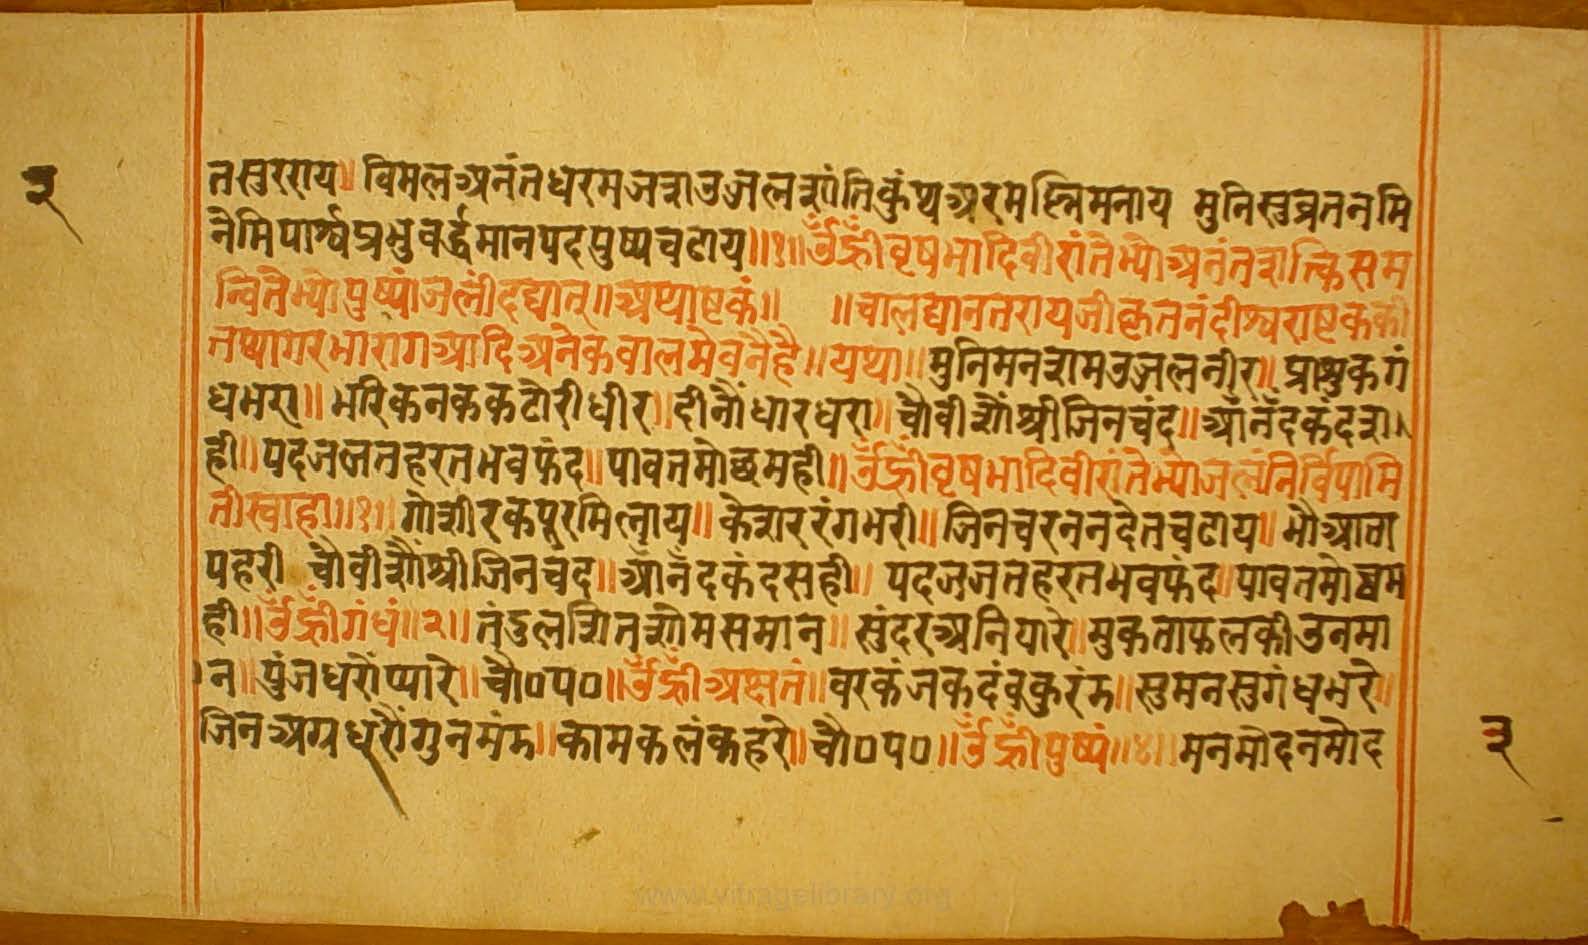 ३
तसुरराय॥ विमलअनंतधरमजशउज्जलशांतिकुंथुअरमल्लिमनाय मुनिसुव्रतनमि
नेमिपार्श्वप्रभुवर्द्धमानपदपुष्पचढाय॥१॥ॐह्रीँवृषभादिवीरांतेभ्योअनंतशक्तिसम
न्वितेभ्योपुष्पांजलीदद्यात्॥अथाष्टकं॥ ॥चालद्यानतरायजीकृतनंदीश्वराष्टककी
तथागरभारागआदिअनेकचालमेवनैहै॥यथा॥मुनिमनशमउज्जलनीर॥प्राशुकगं
धभरा॥भरिकनककटोरीधीर॥दीनौंधारधरा॥चौवीशौंश्रीजिनचंद॥आँनँदकंदश
ही॥पदजजतहरतभवफंद॥पावतमोछमही॥ॐह्रीँवृषभादिवीरांतेभ्योजलंनिर्विपामि
तीस्वाहा॥१॥गोशीरकपूरमिलाय॥केशररंगभरी॥जिनचरननदेतचढाय॥भौआता
पहरी चौवीशौंश्रीजिनचंद॥आँनँदकंदसही॥पदजजतहरतभवफंद॥पावतमोषम
ही॥ॐह्रीँगंधं॥२॥तंदुलशितशोमसमान॥सुंदरअनियारे॥मुकताफलकीउनमा
न॥पुंजधरोंप्यारे॥चौ०प०॥ॐह्रीँअक्षतं॥वरकंजकदंवकुरंम॥सुमनसुगंधभरे॥
जिनअग्रधरौंगुनमंम॥कामकलंकहरे॥चौ०प०॥ॐह्रीँपुष्पं॥४॥मनमोदनमोद
३
www.vitragelibrary.org